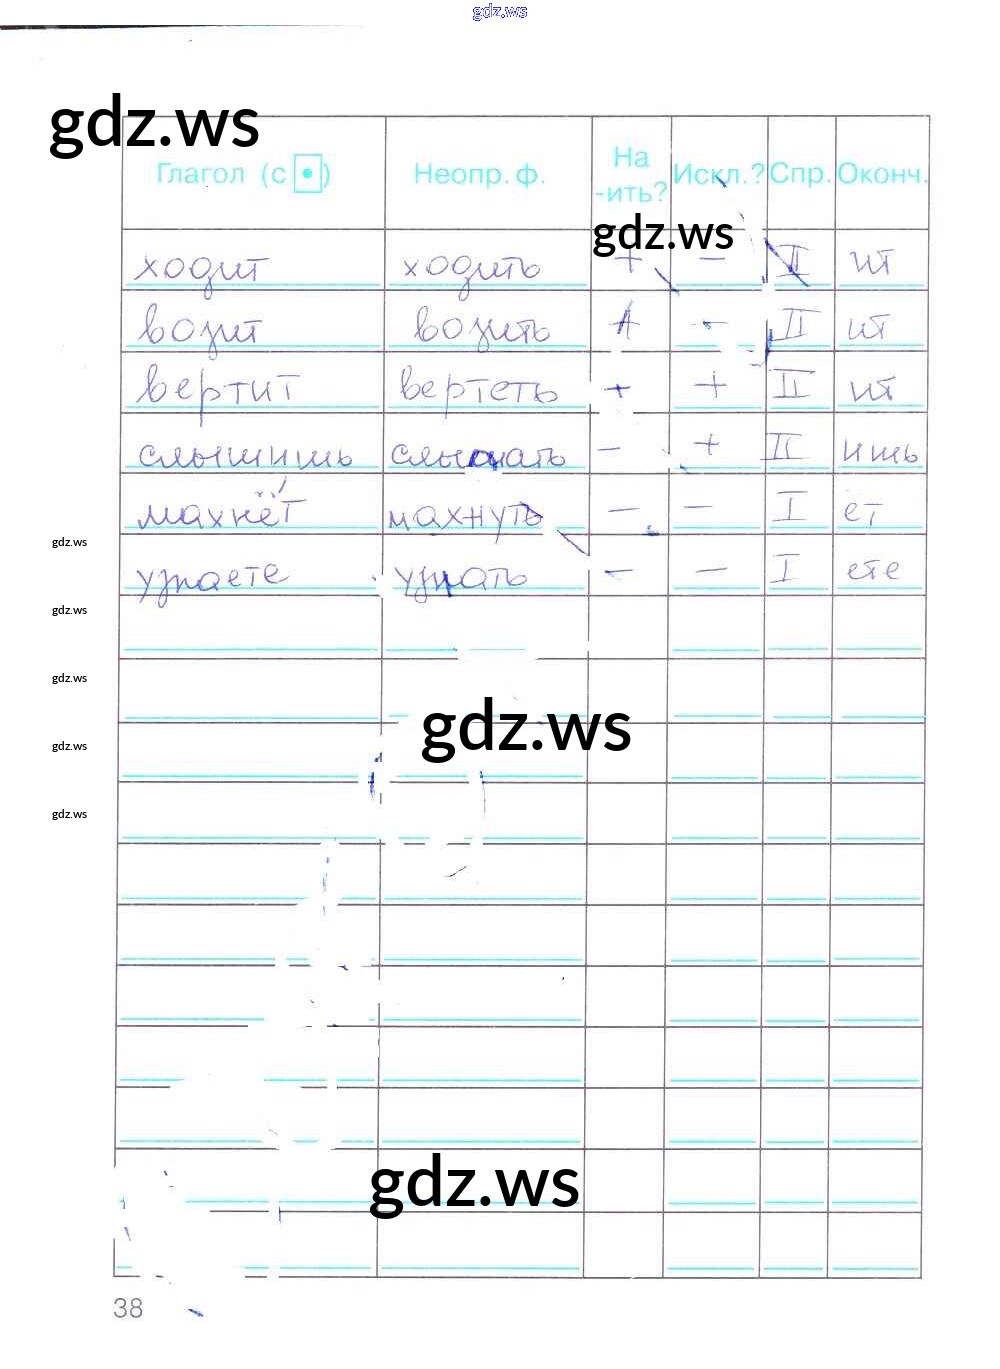 gdz.ws
gdz.ws
Глагол (с •) Неопр. ф. На -ить? Искл.? Спр. Оконч.
gdz.ws
ходит ходить + – II ит
возит возить + – II ит
вертит вертеть + + II ит
слышишь слышать – + II ишь
махнёт махнуть – – I ёт
gdz.ws
узнаете узнать – – I ете
gdz.ws
gdz.ws
gdz.ws
gdz.ws
gdz.ws
gdz.ws
38